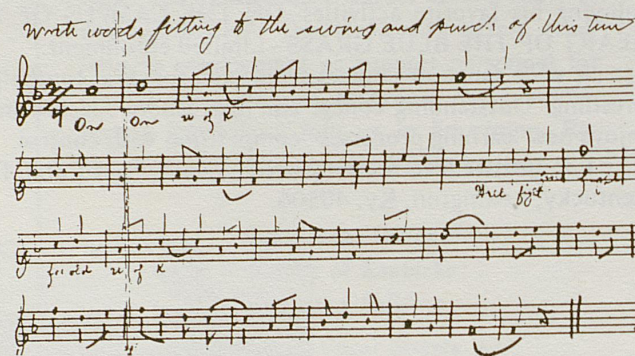 Write words fitting to the swing and punch of this tune
2/4 On On U of K
fight
for old U of K